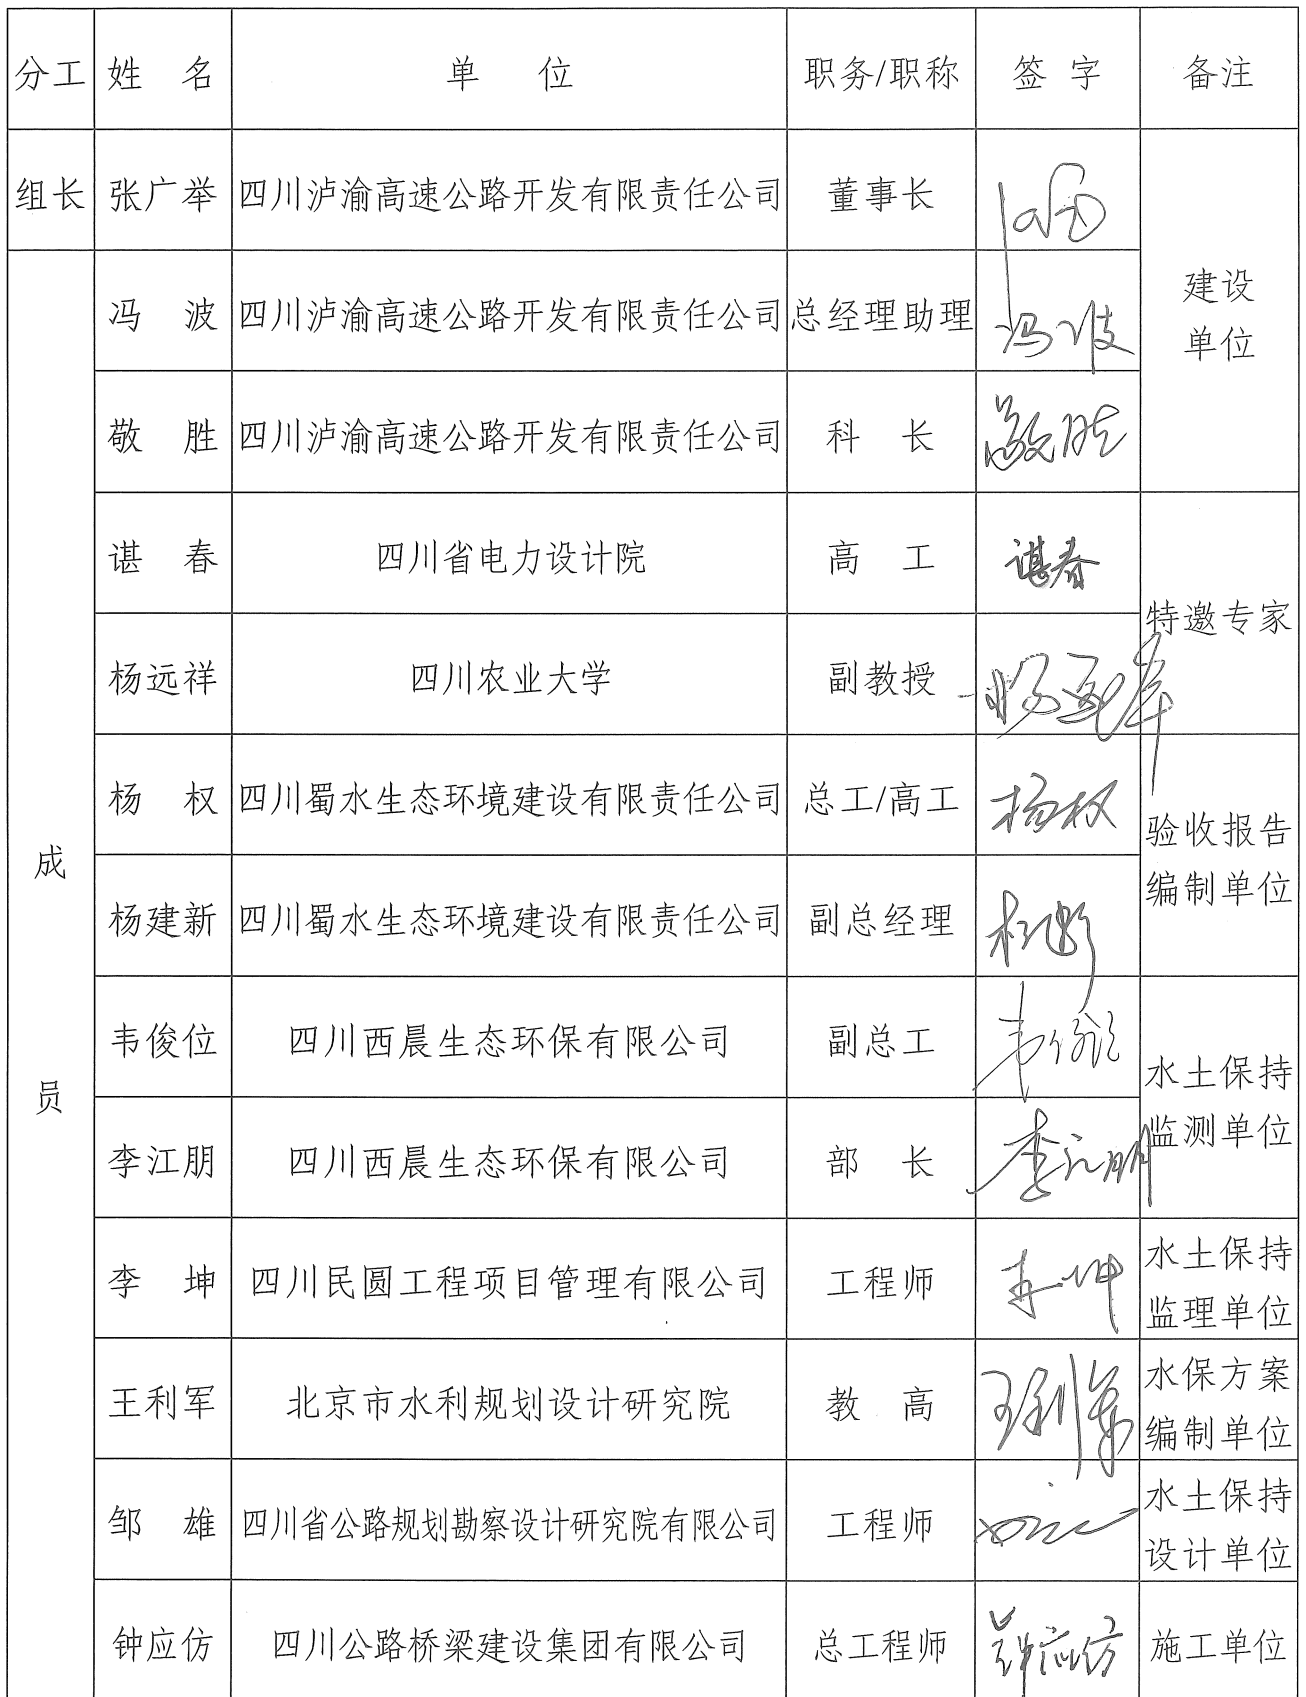 分工 姓 名 单 位 职务/职称 签 字 备注
组长 张广举 四川泸渝高速公路开发有限责任公司 董事长
冯 波 四川泸渝高速公路开发有限责任公司 总经理助理 冯波
建设
单位
敬 胜 四川泸渝高速公路开发有限责任公司 科 长 敬胜
谌 春 四川省电力设计院 高 工 谌春
特邀专家
杨远祥 四川农业大学 副教授 杨远祥
杨 权 四川蜀水生态环境建设有限责任公司 总工/高工 杨权
验收报告
编制单位
成
杨建新 四川蜀水生态环境建设有限责任公司 副总经理 杨建新
韦俊位 四川西晨生态环保有限公司 副总工 韦俊位
水土保持
监测单位
员
李江朋 四川西晨生态环保有限公司 部 长 李江朋
李 坤 四川民圆工程项目管理有限公司 工程师 李坤
水土保持
监理单位
王利军 北京市水利规划设计研究院 教 高 王利军
水保方案
编制单位
邹 雄 四川省公路规划勘察设计研究院有限公司 工程师
水土保持
设计单位
钟应仿 四川公路桥梁建设集团有限公司 总工程师 钟应仿 施工单位